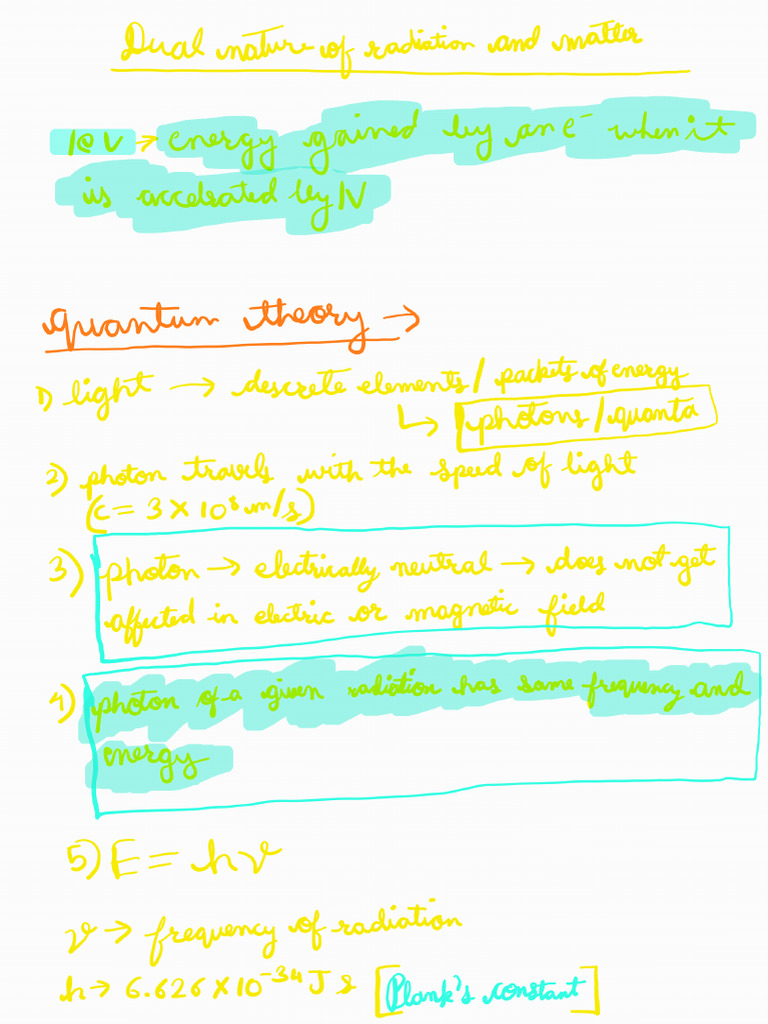 Dual nature of radiation and matter
1eV → energy gained by an e⁻ when it
is accelrated by 1V
quantum theory →
1) light → descrete elements / packets of energy
↳ photons / quanta
2) photon travels with the speed of light
(c = 3 × 10⁸ m/s)
3) photon → electrically neutral → does not get
affected in electric or magnetic field
4) photon of a given radiation has same frequency and
energy
5) E = hν
ν → frequency of radiation
h → 6.626 × 10⁻³⁴ J s [Plank's constant]